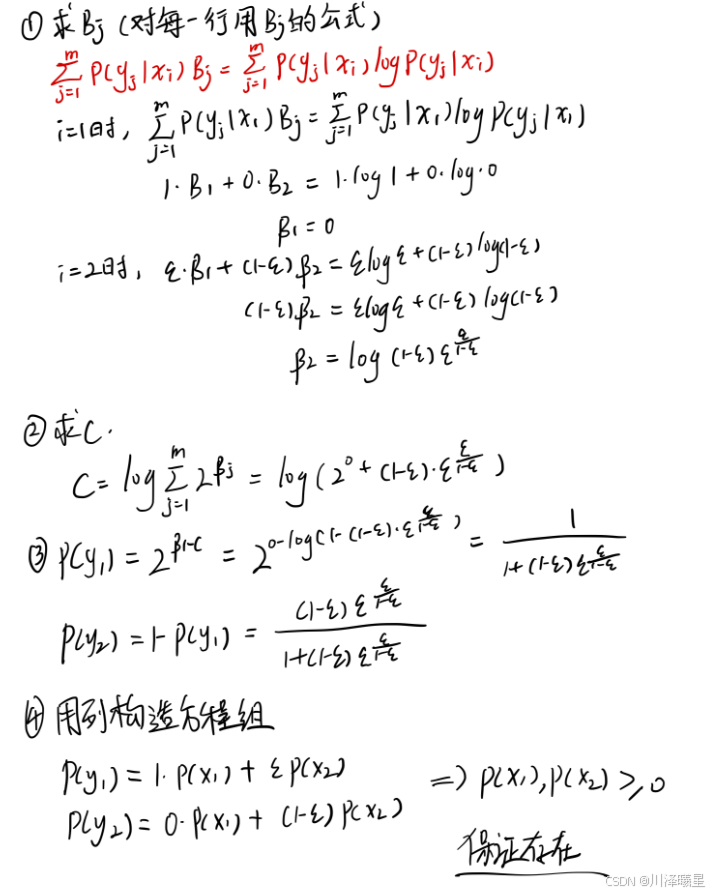 ① 求Bj (对每一行用Bj的公式)
∑_{j=1}^{m} P(yj|xi) Bj = ∑_{j=1}^{m} P(yj|xi) log P(yj|xi)
i=1时, ∑_{j=1}^{m} P(yj|x1) Bj = ∑_{j=1}^{m} P(yj|x1) log P(yj|x1)
1·B1 + 0·B2 = 1·log 1 + 0·log·0
β1 = 0
i=2时, ε·β1 + (1-ε)β2 = εlogε + (1-ε) log(1-ε)
(1-ε)β2 = εlogε + (1-ε) log(1-ε)
β2 = log (1-ε) ε^{ε/(1-ε)}
② 求C.
C = log ∑_{j=1}^{m} 2^{βj} = log(2^0 + (1-ε)·ε^{ε/(1-ε)})
③ P(y1) = 2^{β1-C} = 2^{0-log(1-(1-ε)·ε^{ε/(1-ε)})} = 1/(1+(1-ε)ε^{ε/(1-ε)})
P(y2) = 1-P(y1) = (1-ε)ε^{ε/(1-ε)}/(1+(1-ε)ε^{ε/(1-ε)})
④ 用列构造方程组
P(y1) = 1·P(x1) + εP(x2)
P(y2) = 0·P(x1) + (1-ε)P(x2) ⇒ P(x1),P(x2)≥0
保证存在
CSDN @川泽曦星